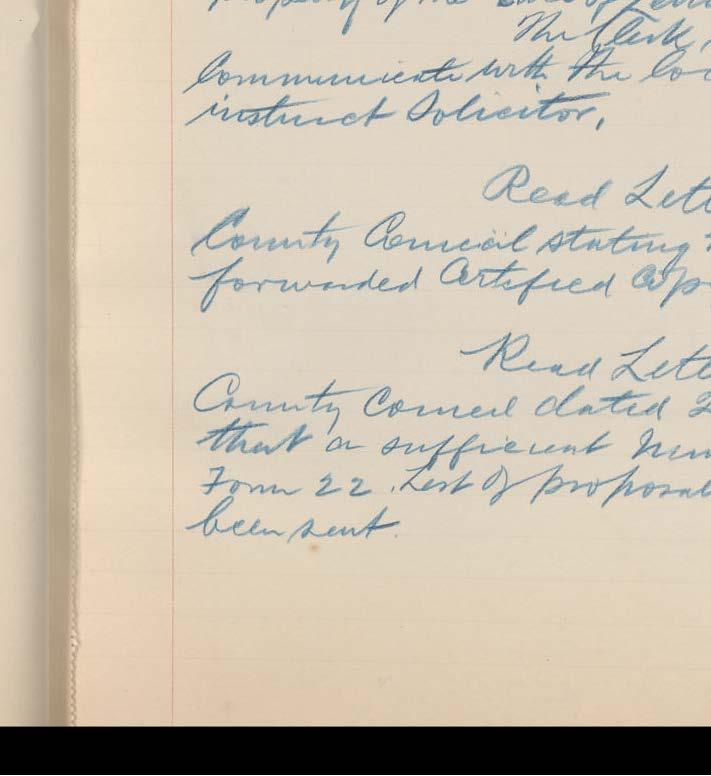 property of the
The Clerk,
Communicate with the
instruct Solicitor,
Read
County Council stating
forwarded Certified
Read
County Council dated
that a sufficient
Form 22. List of
been sent.